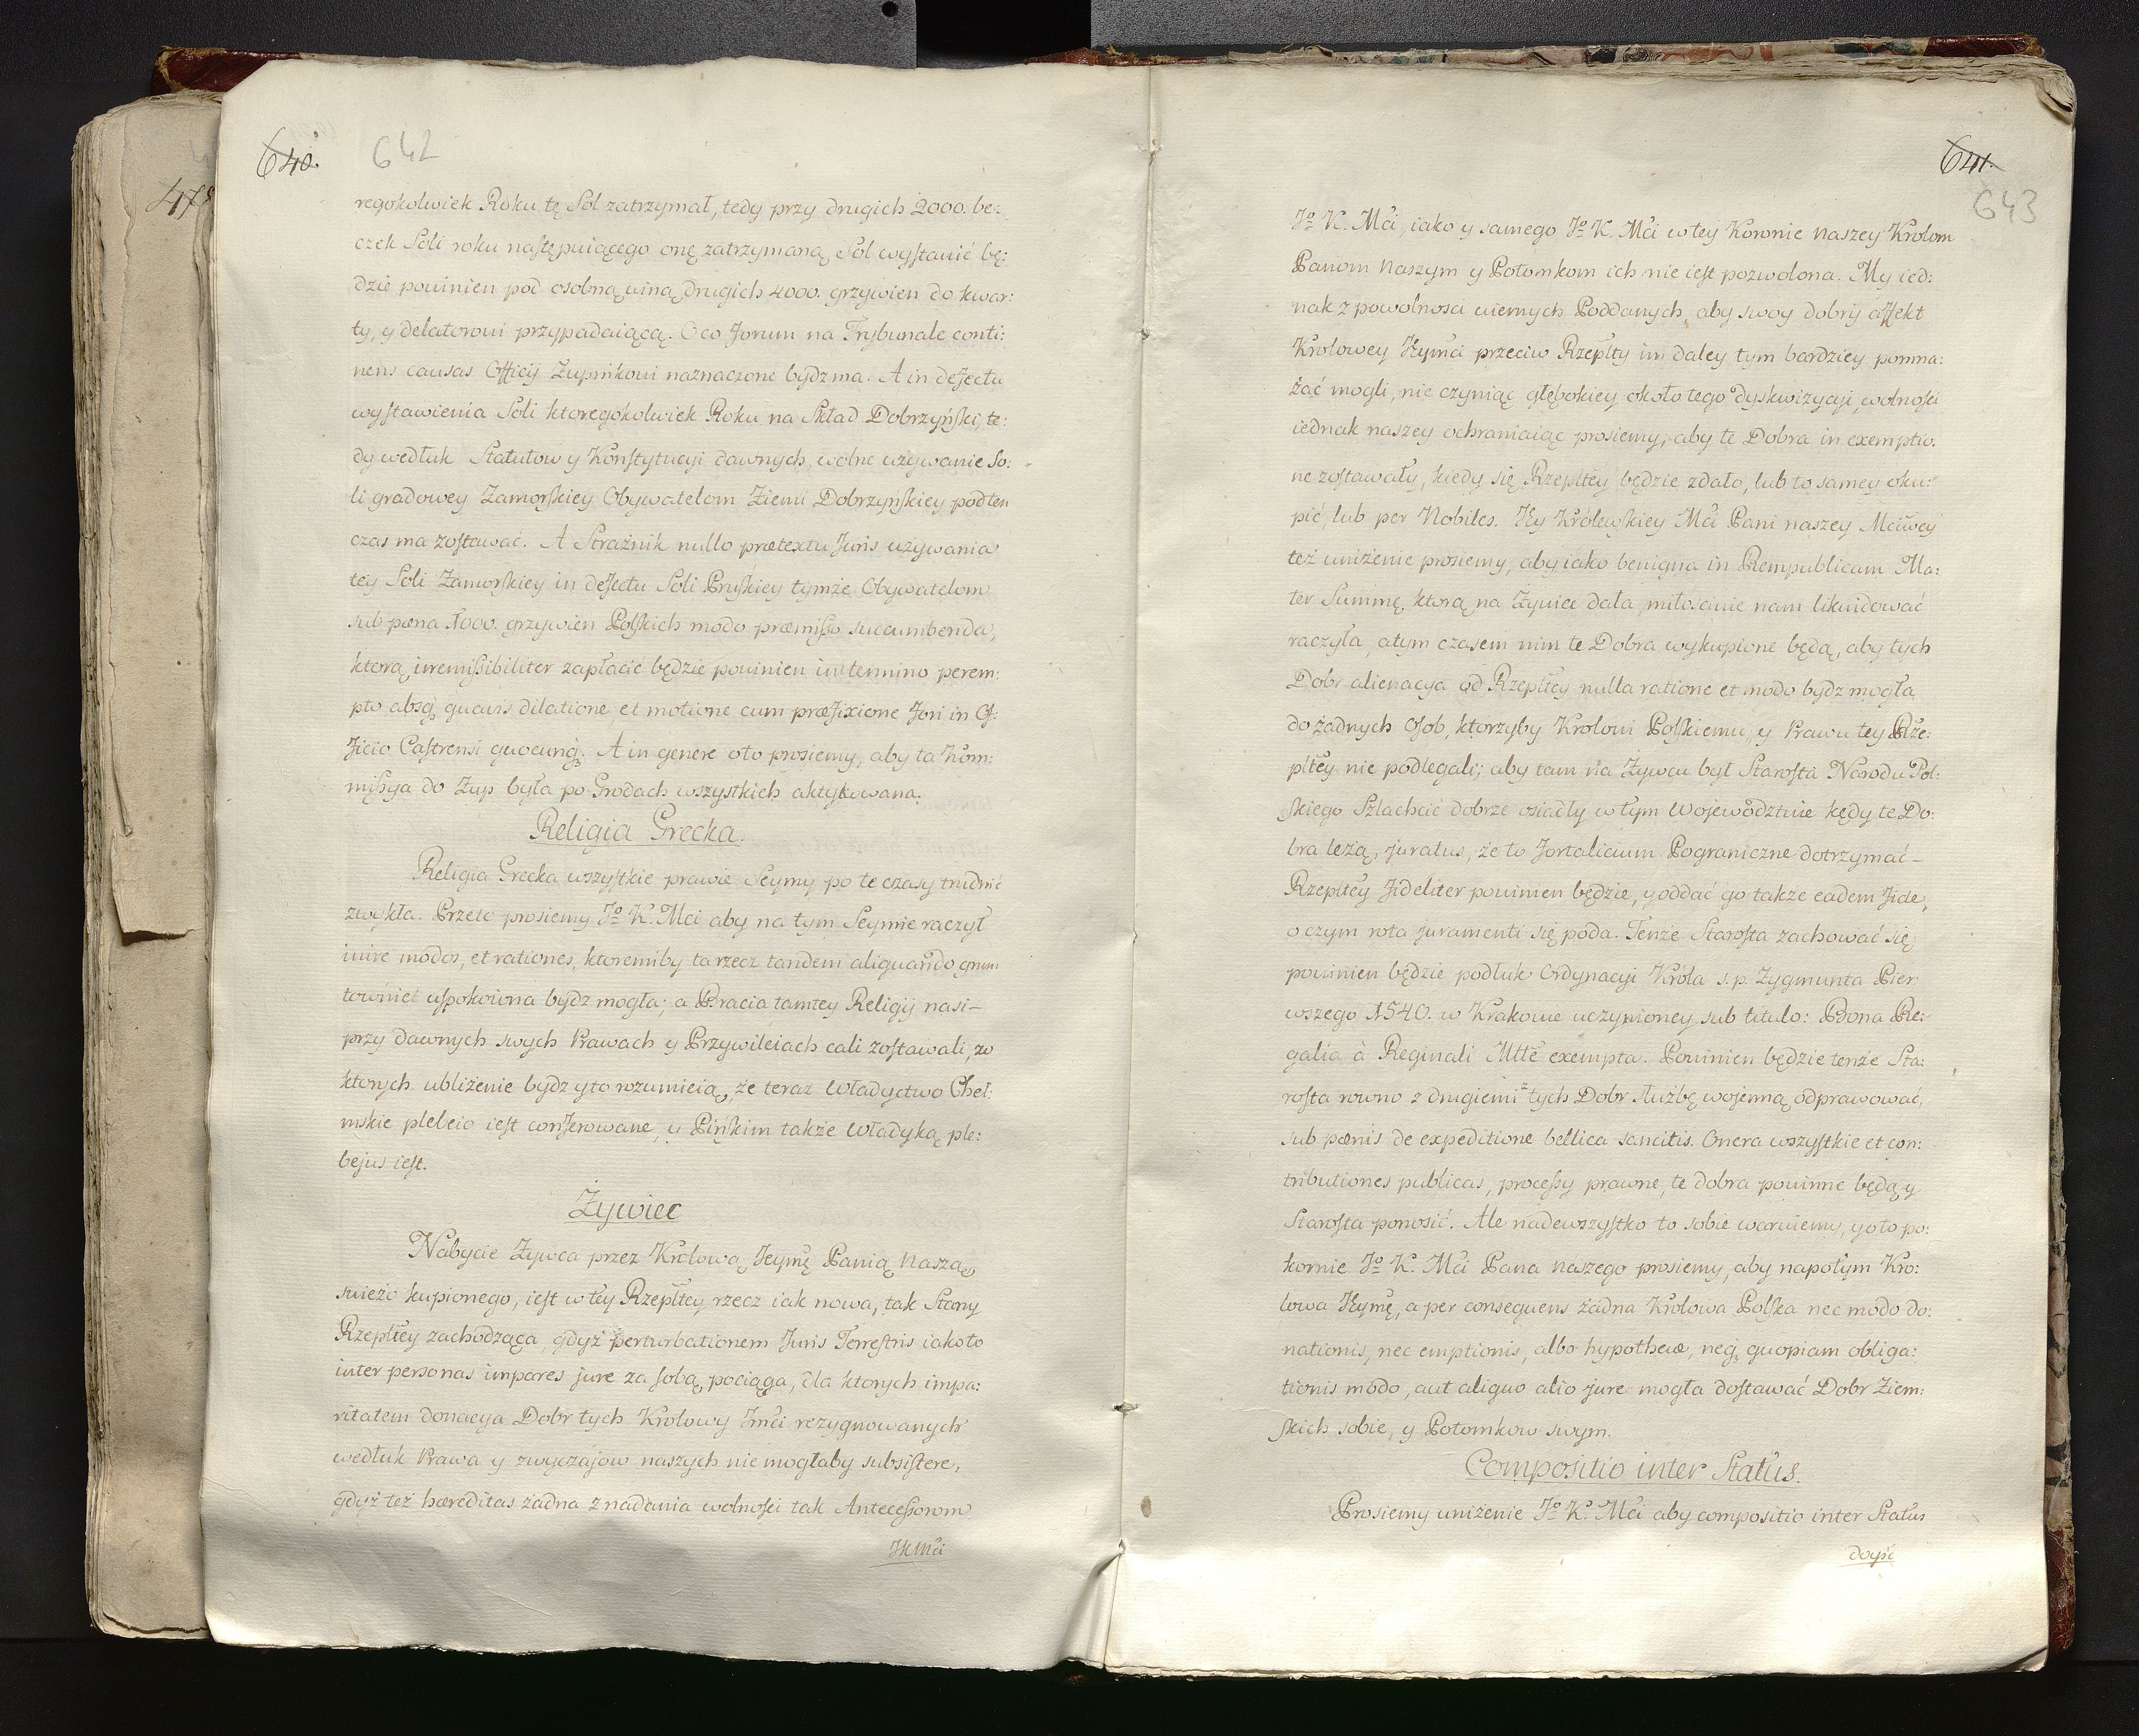 640. 642
regokolwiek Roku tę Sol zatrzymał, tedy przy drugich 2000. be:
czek Soli roku następuiącego onę zatrzymaną Sol wystawić bę:
dzie powinien pod osobną winą drugich 4000. grzywien do kwar:
ty, y delatorowi przypadaiącą. Oco forum na Trybunale conti:
nens causas Officij Zupnikowi naznaczone bydz ma. A in defectu
wystawienia Soli ktoregokolwiek Roku na Skład Dobrzyński, te:
dy wedłuk Statutow y Konstytucyi dawnych, wolne używanie So:
li gradowey Zamorskiey Obywatelom Ziemi Dobrzyńskiey pod ten
czas ma zostawać. A Strażnik nullo prætextu Juris używania
tey Soli Zamorskiey in defectu Soli Pruskiey tymże Obywatelom
sub pœna 1000. grzywien Polskich modo præmisso succumbenda,
ktorą irremissibiliter zapłacić będzie powinien in termino perem:
pto absq; quavis dilatione, et motione cum præfixione fori in Of:
ficio Castrensi quocunq;. A in genere oto prosiemy, aby ta Kom:
missya do Zup była po Grodach wszystkich aktykowana.
Religia Grecka.
Religia Grecka wszystkie prawie Seymy po te czasy trudnić
zwykła. Przeto prosiemy Jo K. Mci aby na tym Seymie raczył
inire modos, et rationes, ktoremiby ta rzecz tandem aliquando grun
townie uspokoiona bydz mogła; a Bracia tamtey Religij nasi
przy dawnych swych Prawach y Przywileiach cali zostawali, w
ktorych ubliżenie bydz yto rozumieią, że teraz Władyctwo Cheł:
mskie plebeio iest conferowane, y Pińskim także Władyką ple:
bejus iest.
Żywiec
Nabycie Żywca przez Krolową Jeymę Panią Naszą
swieżo kupionego, iest w tey Rzepltey rzecz iak nowa, tak Stany
Rzepltey zachodząca, gdyż perturbationem Juris Terrestris iakoto
inter personas impares jure za sobą pociąga, dla ktorych impa:
ritatem donacya Dobr tych Krolowy Jmci rezygnowanych
wedłuk Prawa y zwyczajow naszych nie mogłaby subsistere,
gdyż też hæreditas żadna z nadania wolności tak Antecessorom
JKMci
641. 643
Jo K. Mci, iako y samego Jo K. Mci w tey Koronie Naszey Krolom
Panom Naszym y Potomkom ich nie iest pozwolona. My ied:
nak z powolnosci wiernych Poddanych, aby swoy dobry affekt
Krolowey Jeymci przeciw Rzeplty im daley tym bardziey pomna:
żać mogli, nie czyniąc głębokiey około tego dyskwizycyi, wolności
iednak naszey ochraniaiąc prosiemy, aby te Dobra in exemptio:
ne zostawały, kiedy się Rzepltey będzie zdało, lub to samey oku:
pić, lub per Nobiles. Jey Królewskiey Mci Pani naszey Mciwey
też uniżenie prosiemy, aby iako benigna in Rempublicam Ma:
ter Summę, ktorą na Żywiec dała, miłościwie nam likwidować
raczyła, atym czasem nim te Dobra wykupione będą, aby tych
Dobr alienacya od Rzepltey nulla ratione et modo bydz mogła
do żadnych Osob, ktorzyby Krolowi Polskiemu, y Prawu tey Rze:
pltey nie podlegali; aby tam na Żywcu był Starosta Narodu Pol:
skiego Szlachcic dobrze osiadły w tym Wojewodztwie kędy te Do:
bra leżą, juratus, że to fortalicium Pograniczne dotrzymać
Rzepltey fideliter powinien będzie, y oddać go także eadem fide,
o czym rota juramenti się poda. Tenże Starosta zachować się
powinien będzie podłuk Ordynacyi Króla s. p. Zygmunta Pier:
wszego 1540. w Krakowie uczynioney sub titulo: Bona Re:
galia à Reginali Mtte exempta. Powinien będzie tenże Sta:
rosta rowno z drugiemi z tych Dobr służbę wojenną odprawować,
sub pœnis de expeditione bellica sancitis. Onera wszystkie et con:
tributiones publicas, processy prawne, te dobra powinne będą y
Starosta ponosić. Ale nadewszystko to sobie waruiemy, y oto po:
kornie Jo K. Mci Pana Naszego prosiemy, aby napotym Kro:
lowa Jeymę, a per consequens żadna Krolowa Polska nec modo do:
nationis, nec emptionis, albo hypothecæ, neq; quopiam obliga:
tionis modo, aut aliquo alio jure mogła dostawać Dobr Ziem:
skich sobie, y Potomkow swym.
Compositio inter Status.
Prosiemy uniżenie Jo K. Mci aby compositio inter Status
doyść